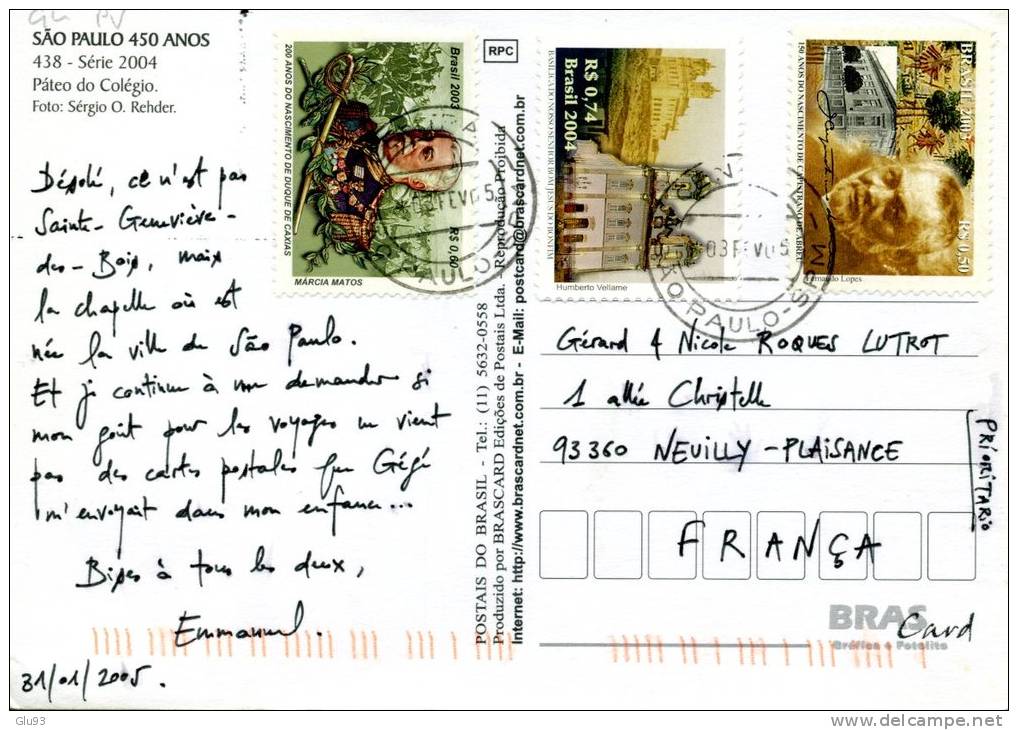 SÃO PAULO 450 ANOS
438 - Série 2004
Páteo do Colégio.
Foto: Sérgio O. Rehder.
Désolé, ce n'est pas
Sainte-Geneviève-
des-Bois, mais
la chapelle où est
née la ville de São Paulo.
Et je continue à me demander si
mon goût pour les voyages ne vient
pas des cartes postales que Gégé
m'envoyait dans mon enfance...
Bises à tous les deux,
Emmanuel.
31/01/2005.
200 ANOS DO NASCIMENTO DE DUQUE DE CAXIAS
Brasil 2003
R$ 0,60
MÁRCIA MATOS
RPC
POSTAIS DO BRASIL - Tel.: (11) 5632-0558
Produzido por BRASCARD Edições de Postais Ltda. - Reprodução Proibida
Internet: http://www.brascardnet.com.br - E-Mail: postcard@brascardnet.com.br
R$ 0,74
Brasil 2004
BASÍLICA DO NOSSO SENHOR BOM JESUS DO BONFIM
Humberto Vellame
BRASIL 2003
150 ANOS DO NASCIMENTO DE CAPISTRANO DE ABREU
R$ 0,50
Fernando Lopes
03 FEV 05
SÃO PAULO - SP
Gérard & Nicole ROQUES LUTROT
1 allée Christelle
93360 NEUILLY-PLAISANCE
FRANÇA
PRIORITARIO
BRAS
Card
Gráfica e Fotolito
Glu93
www.delcampe.net